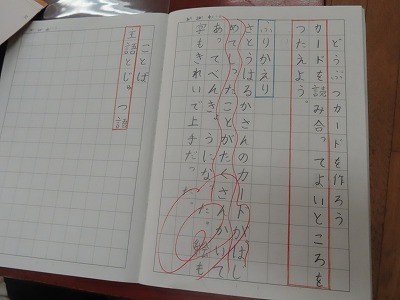 どうぶつカードを作ろう
カードを読み合ってよいところを
つたえよう。
ふりかえり
さとうはるかさんのカードが、はじ
めてしったことがたくさんかいて
あってべんきょうになった。絵も
字もきれいで上手だった。
ことば
主語とじゅつ語